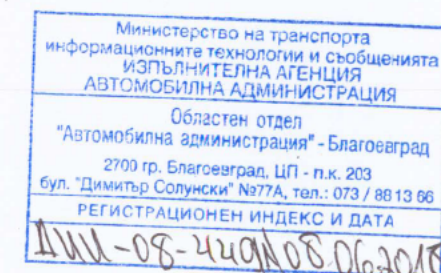 Министерство на транспорта
информационните технологии и съобщенията
ИЗПЪЛНИТЕЛНА АГЕНЦИЯ
АВТОМОБИЛНА АДМИНИСТРАЦИЯ
Областен отдел
"Автомобилна администрация" - Благоевград
2700 гр. Благоевград, ЦП - п.к. 203
бул. "Димитър Солунски" №77А, тел.: 073 / 88 13 66
РЕГИСТРАЦИОНЕН ИНДЕКС И ДАТА
08.06.2018